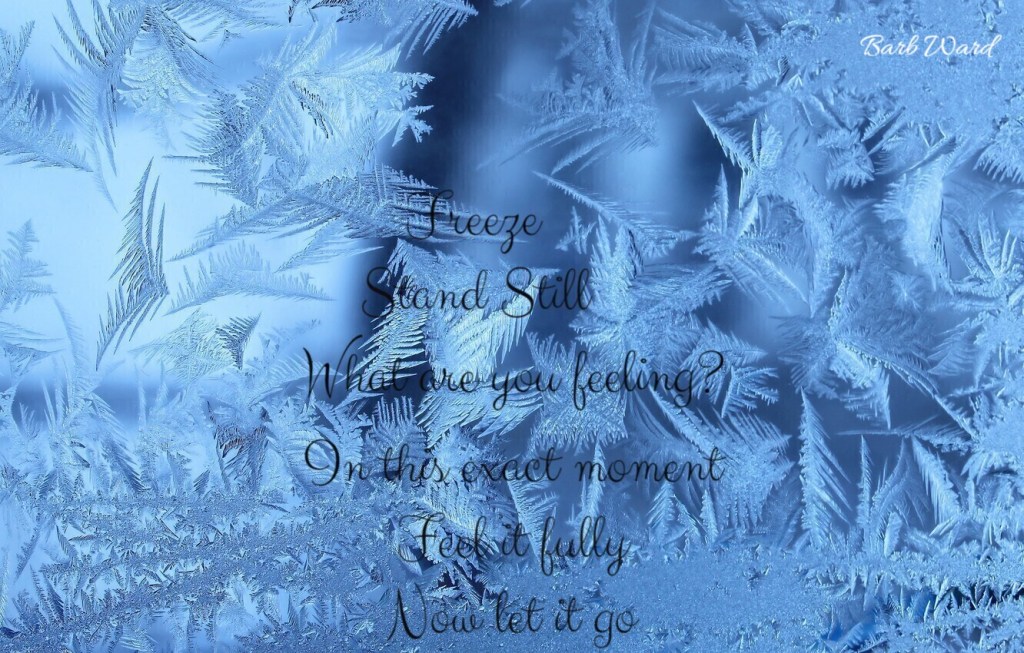 Barb Ward
Freeze
Stand Still
What are you feeling?
In this exact moment
Feel it fully
Now let it go